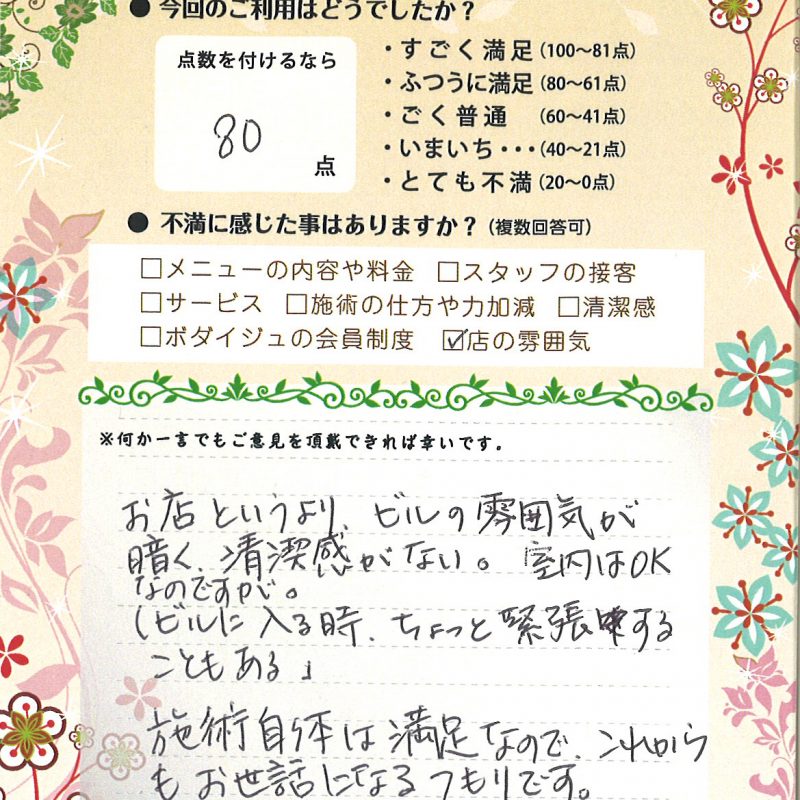 ● 今回のご利用はどうでしたか?
点数を付けるなら
80
点
・すごく満足(100〜81点)
・ふつうに満足(80〜61点)
・ごく普通 (60〜41点)
・いまいち・・・(40〜21点)
・とても不満(20〜0点)
● 不満に感じた事はありますか?(複数回答可)
□メニューの内容や料金 □スタッフの接客
□サービス □施術の仕方や力加減 □清潔感
□ボダイジュの会員制度 ☑店の雰囲気
※何か一言でもご意見を頂戴できれば幸いです。
お店というより、ビルの雰囲気が
暗く、清潔感がない。室内はOK
なのですが。
(ビルに入る時、ちょっと緊張する
こともある」
施術自体は満足なので、これから
もお世話になるつもりです。